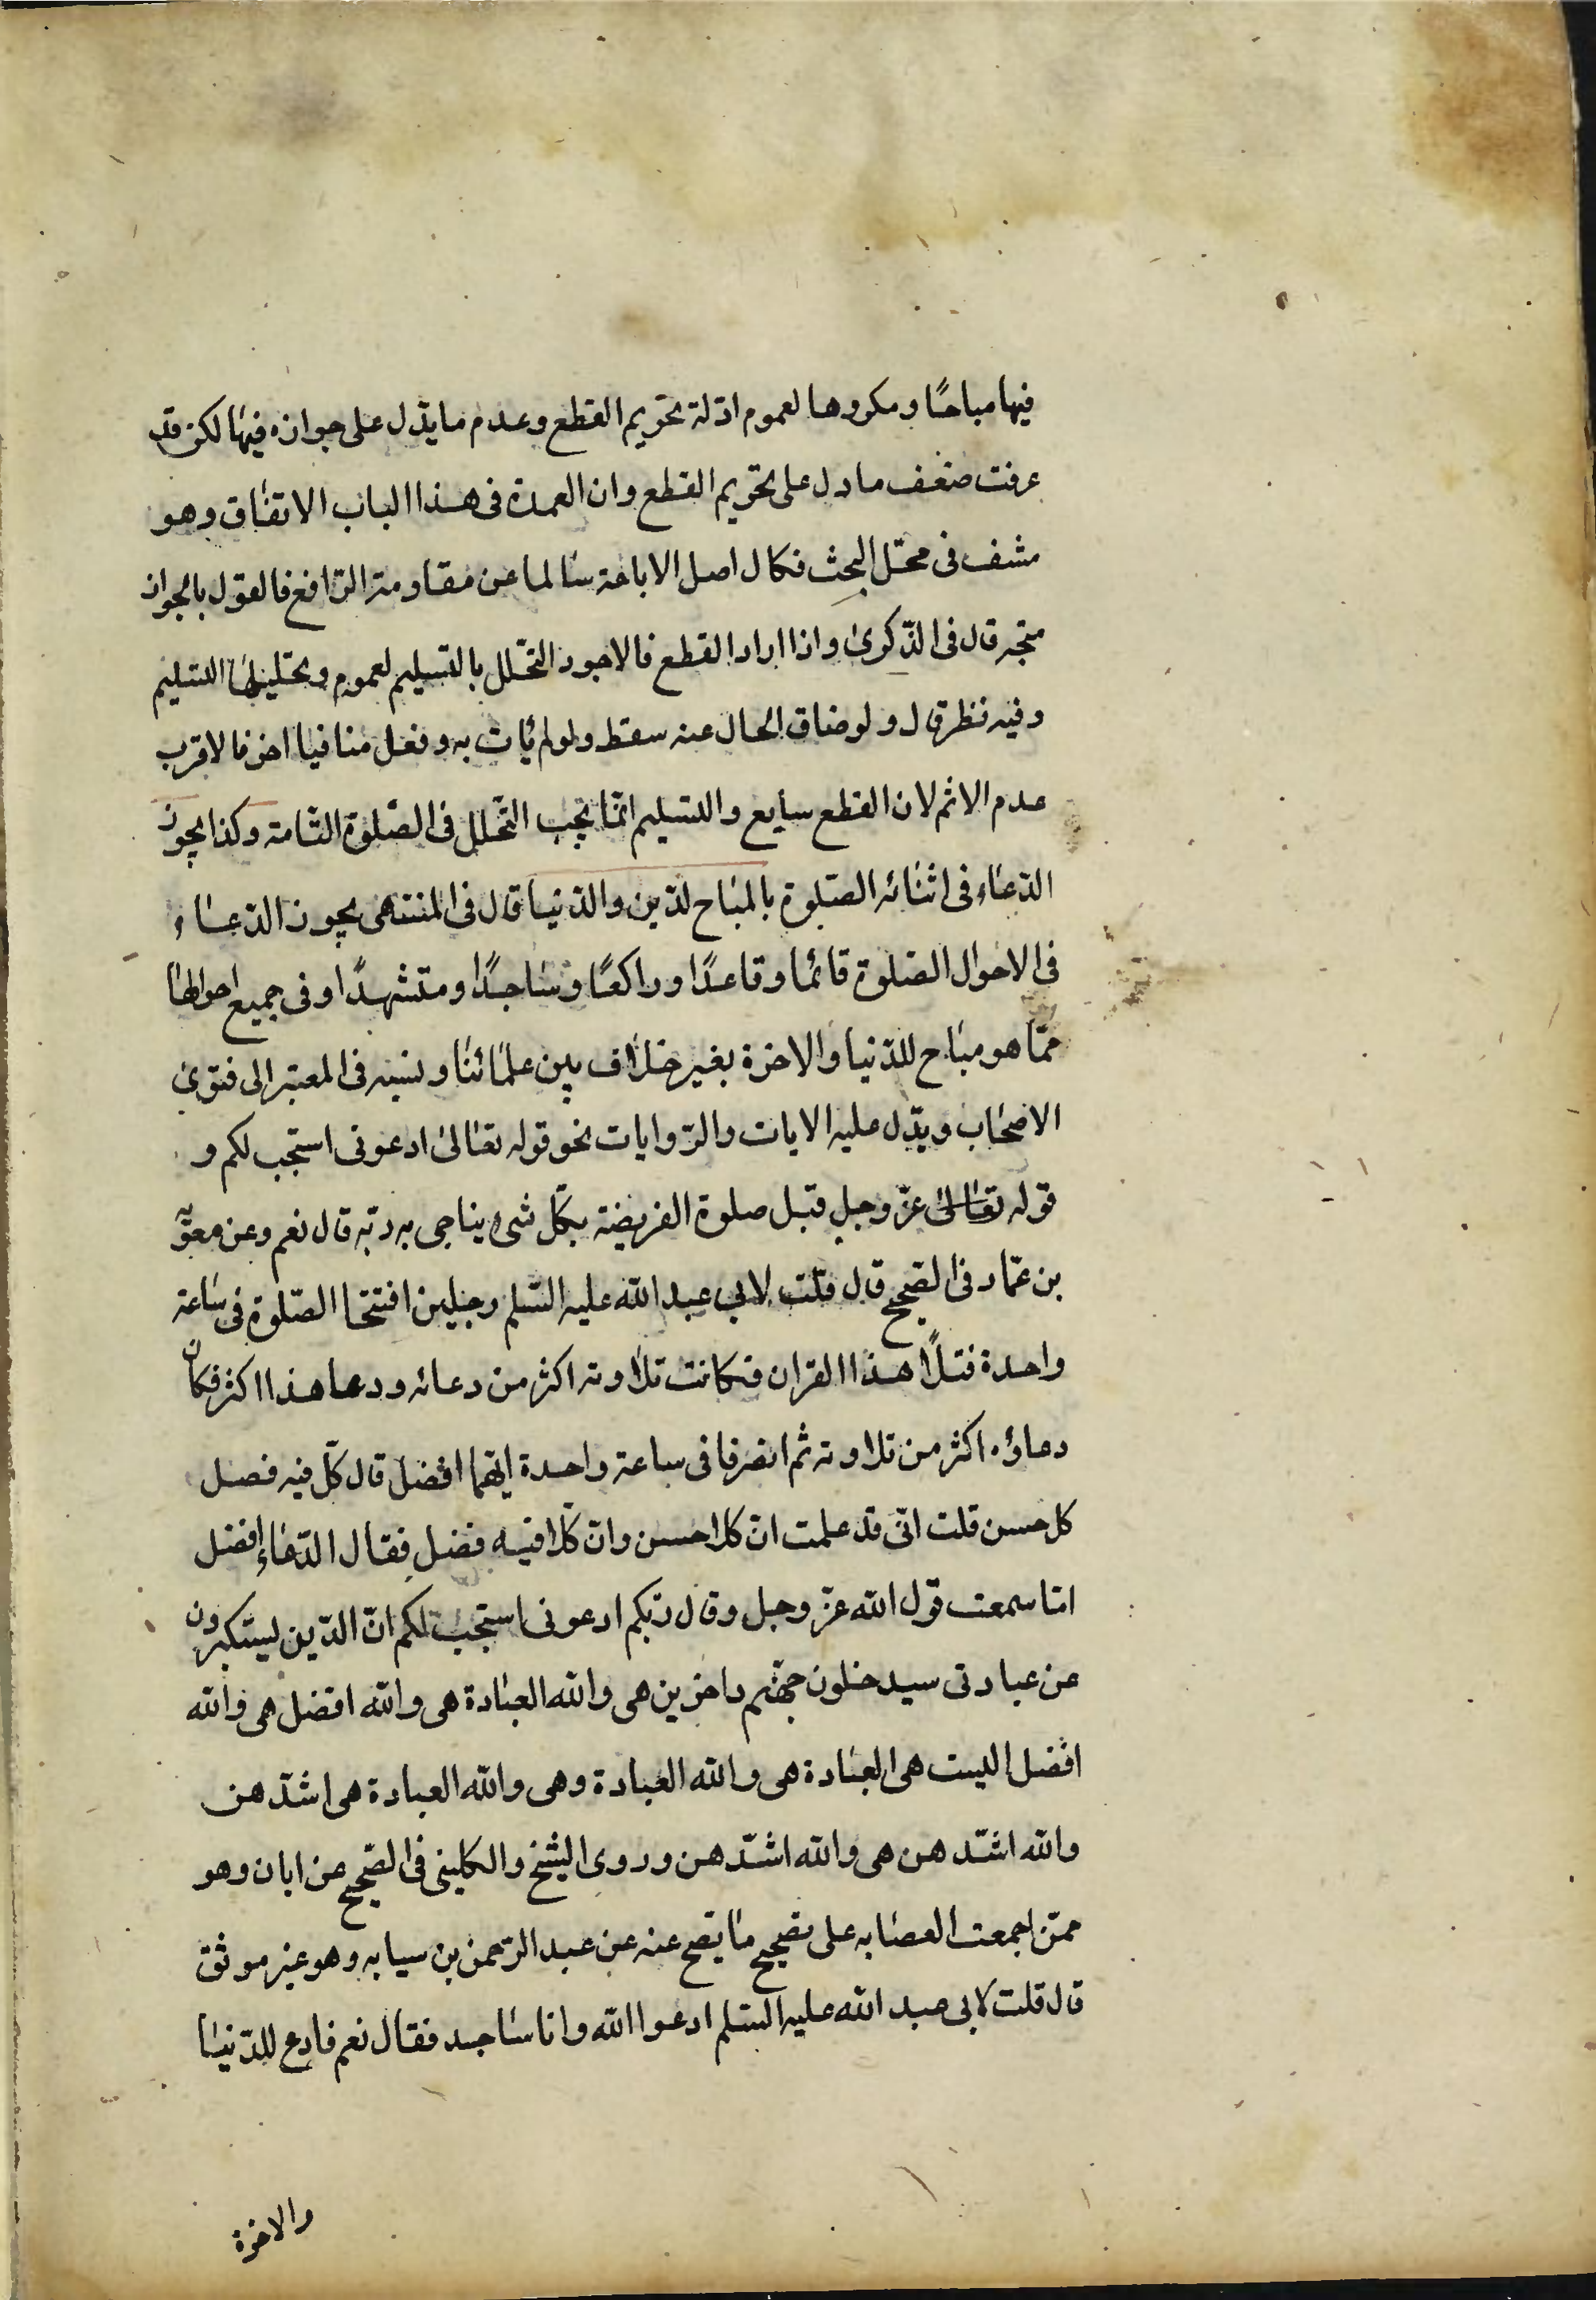 فيها مباحًا ومكروها لعموم ادلة تحريم القطع وعدم ما يدّل على جوازه فيها لكن قد
عرفت ضعف ما دل على تحريم القطع وان العمدة فى هذا الباب الاتفاق وهو
مشف فى محّل البحث فكال اصل الاباحة سالما عن مقاومة الرّافع فالقول بالجواز
متجه قال فى الذّكرى واذا اراد القطع فالاجود التحّلل بالتسليم لعموم وتحليلها التسليم
وفيه نظر قال ولو ضاق الحال عنه سقط ولو لم يأت به وفعل منافيا اخر فالاقرب
عدم الاثم لان القطع سايع والتسليم انمّا يجب التّحلل فى الصّلوة التّامة وكذا يجوز
الدّعاء فى اثنائه الصّلوة بالمباح لدّين والدّنيا قال فى المنتهى يجوز الدّعاء
فى الاحوال الصّلوة قائما وقاعدًا وراكعًا وساجدًا ومتشهدًا وفى جميع احوالها
ممّا هو مباح للدّنيا والاخرة بغير خلاف بين علمائنا ونسبه فى المعتبر الى فتوى
الاصحاب ويدّل عليه الايات والرّوايات نحو قوله تعالى ادعونى استجب لكم و
قوله تعالى عزّ وجل قبل صلوة الفريضة بكّل شىء يناجى به ربّه قال نعم وعن معوّية
بن عمّار فى الصّحيح قال قلت لابى عبد الله عليه السّلم رجلين افتتحا الصّلوة فى ساعة
واحدة فتلًا هذا القران فكانت تلاوته اكثر من دعائه ودعا هذا اكثر فكان
دعاؤه اكثر من تلاوته ثم انصرفا فى ساعة واحدة ايّهما افضل قال كلّ فيه فصل
كل حسن قلت انّى قد علمت انّ كلا حسن وانّ كّلا فيه فضل فقال الدّعاء افضل
امّا سمعت قول الله عزّ وجل وقال ربّكم ادعونى استجب لكم انّ الذّين يستكبرون
عن عبادتى سيدخلون جهنّم داخرين هى والله العبادة هى والله افضل هى والله
افضل اليست هى العبادة هى والله العبادة وهى والله العبادة هى اشدّ هن
والله اشدّ هن هى والله اشدّ هن وروى الشيخ والكلينى فى الصّحيح عن ابان وهو
ممّن اجمعت العصابه على تصحيح ما يصح عنه عن عبد الرّحمن بن سيابه وهو غير موثق
قال قلت لابى عبد الله عليه السّلم ادعوا الله وانا ساجد فقال نعم فادع للدّنيا
والاخرة